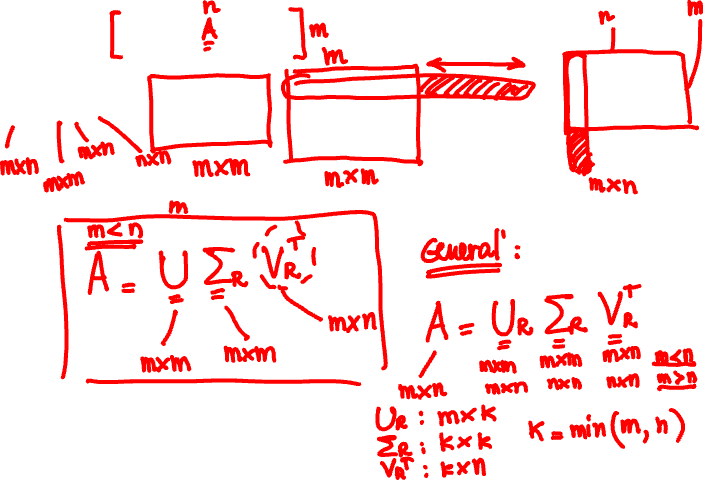 n
[ A ] m
m
n m
m×n m×m m×n n×n
m×m
m×m
m×n
m
m<n
A = U Σ_R V_R^T
m×m m×m m×n
General :
A = U_R Σ_R V_R^T
m×n
m×m m×m m×n m<n
m×n n×n n×n m>n
U_R : m×k
Σ_R : k×k
V_R^T : k×n
K = min(m, n)